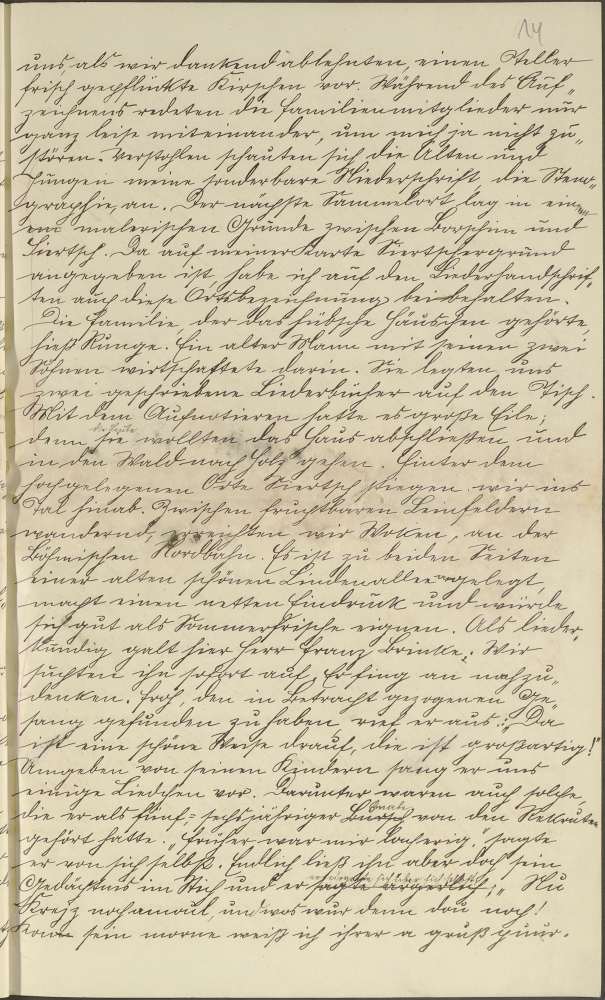 14
uns, als wir dankend ablehnten, einen Teller
frisch gepflückte Kirschen vor. Während des Auf„
zeichnens redeten die Familienmitglieder nur
ganz leise miteinander, um mich ja nicht zu„
stören. Verstohlen schauten sich die Alten und
Jungen meine sonderbare Niederschrift, die Steno„
graphie, an. Der nächste Sammelort lag in einem
malerischen Grunde zwischen Borschim und
Siertsch. Da auf meiner Karte Siertschergrund
angegeben ist, habe ich auf den Liederhandschrif„
ten auch diese Ortsbezeichnung beibehalten.
Die Familie, der das hübsche Häuschen gehörte,
hieß Runge. Ein alter Mann mit seinen zwei
Söhnen wirtschaftete darin. Sie legten uns
zwei geschriebene Liederbücher auf den Tisch.
Mit dem Aufnotieren hatte es große Eile;
denn die Leute wollten das Haus abschließen und
in den Wald nach Holz gehen. Hinter dem
hochgelegenen Orte Siertsch stiegen wir ins
Tal hinab. Zwischen fruchtbaren Leinfeldern
wandernd, erreichten wir Woken, an der
Böhmischen Nordbahn. Es ist zu beiden Seiten
einer alten schönen Lindenallee angelegt,
macht einen netten Eindruck und würde
sich gut als Sommerfrische eignen. Als lieder„
kundig galt hier Herr Franz Brinke. Wir
suchten ihn sofort auf. Er fing an nachzu„
denken. Froh, den in Betracht gezogenen Ge„
sang gefunden zu haben, rief er aus: „Da
ist eine schöne Weise drauf, die ist großartig!"
Umgeben von seinen Kindern sang er uns
einige Liedchen vor. Darunter waren auch solche,
die er als fünf- sechsjähriger Knabe von den Rekruten
gehört hatte. „Früher war mir lacherig," sagte
er von sich selbst. Endlich ließ ihn aber doch sein
Gedächtnis im Stich und er sagte ärgerlich: „Nu
Kreuz nochamoul, und wos wur denn dou noch!
sein morne weiß ich ihrer a gruß Puur.